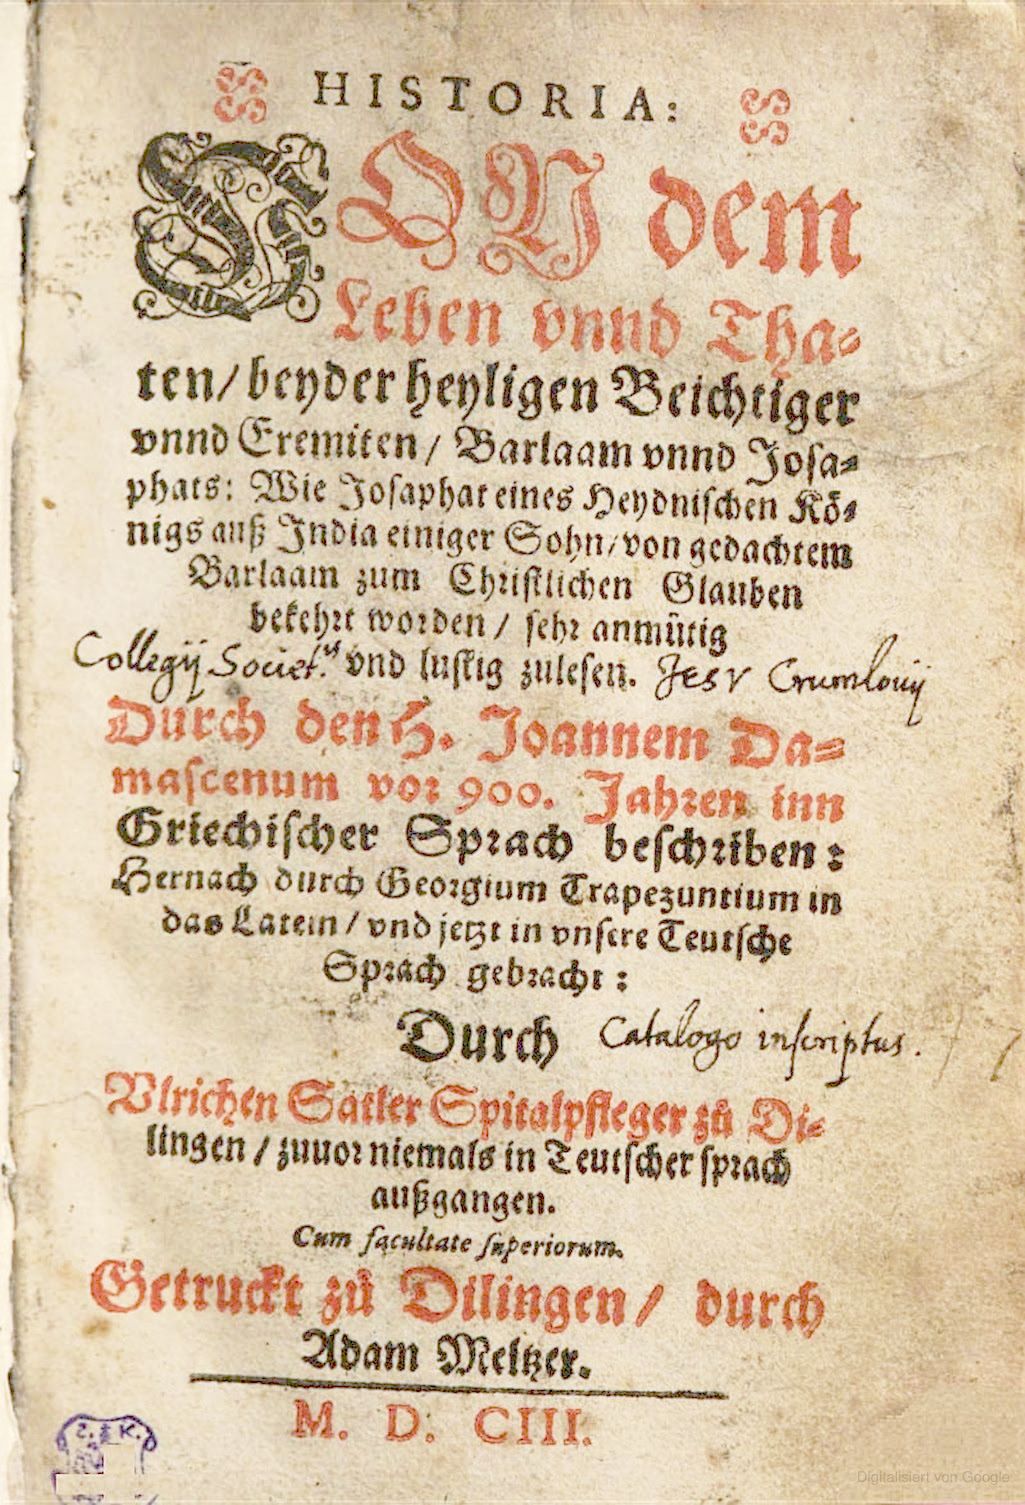 HISTORIA:
VON dem
Leben vnnd Tha-
ten/ beyder heyligen Beichtiger
vnnd Eremiten/ Barlaam vnnd Josa-
phats: Wie Josaphat eines Heydnischen Kö-
nigs auß India einiger Sohn/ von gedachtem
Barlaam zum Christlichen Glauben
bekehrt worden/ sehr anmütig
vnd lustig zulesen.
Collegij Societ.tis Jesv Crumlouij
Durch den H. Joannem Da-
mascenum vor 900. Jahren inn
Griechischer Sprach beschriben:
Hernach durch Georgium Trapezuntium in
das Latein/ vnd jetzt in vnsere Teutsche
Sprach gebracht:
Durch
Catalogo inscriptus.
Vlrichen Satler Spitalpfleger zů Di-
lingen/ zuuor niemals in Teutscher sprach
außgangen.
Cum facultate superiorum.
Getruckt zů Dilingen/ durch
Adam Meltzer.
M. D. CIII.
Digitalisiert von Google